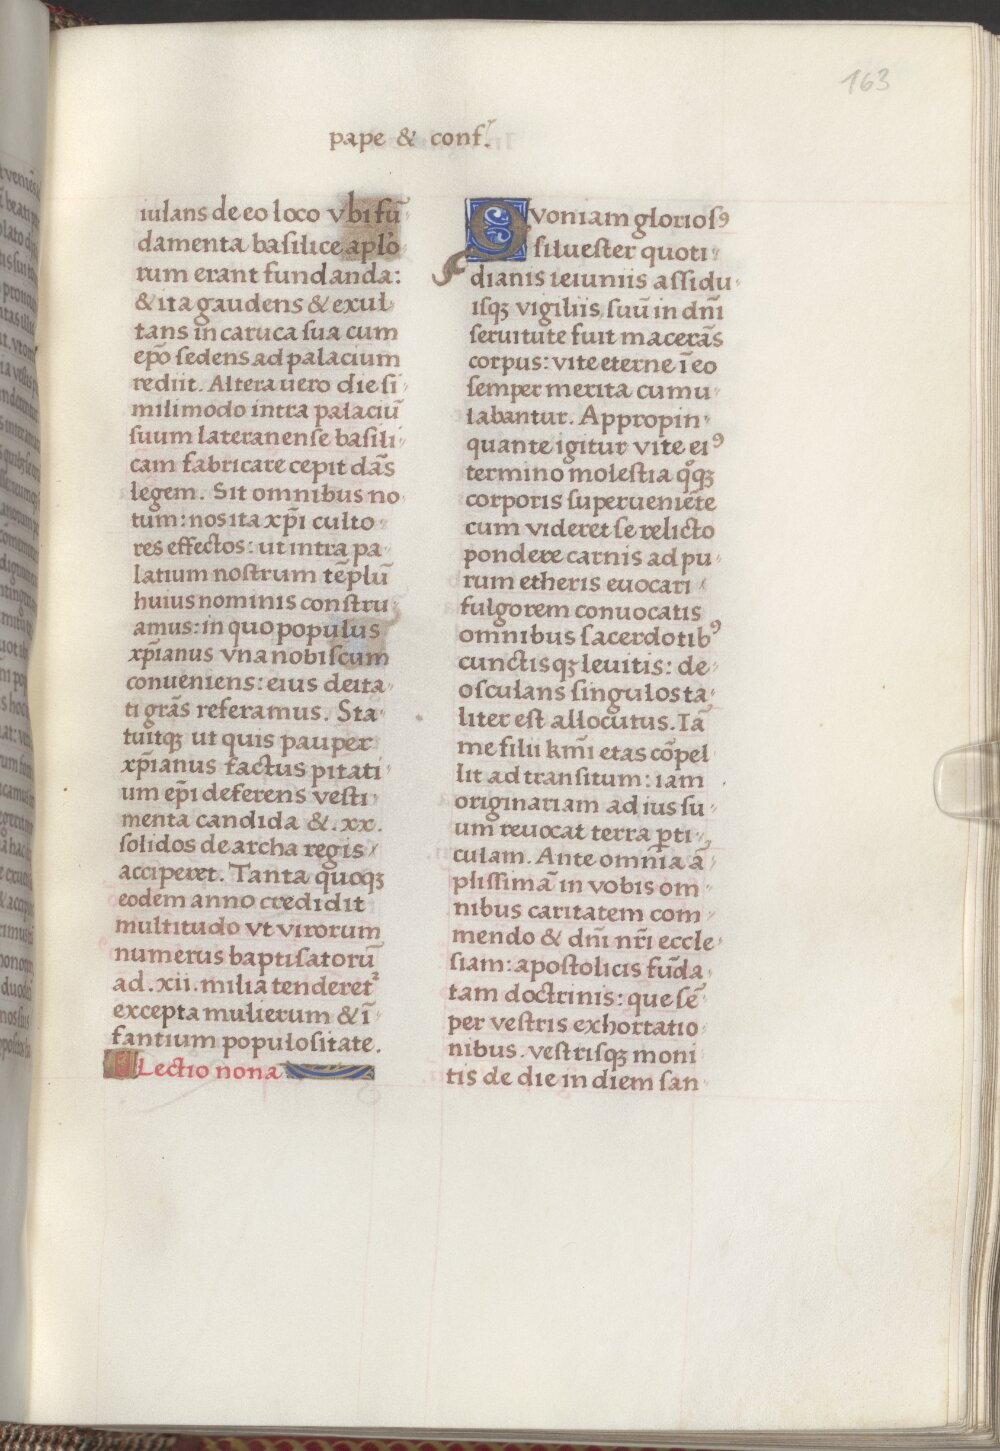 163
pape & conf.
iulans de eo loco vbi fū
damenta basilice aplo̅
rum erant fundanda:
& ita gaudens & exul
tans in caruca sua cum
ep̄o sedens ad palacium
rediit. Altera uero die si
mili modo intra palaciū
suum lateranense basili
cam fabricare cepit dās
legem. Sit omnibus no
tum: nos ita xp̄i culto
res effectos: ut intra pa
latium nostrum tēplū
huius nominis constru
amus: in quo populus
xp̄ianus vna nobiscum
conueniens: eius deita
ti grās referamus. Sta
tuitqꝫ ut quis pauper
xp̄ianus factus pitati
um ep̄i deferens vesti
menta candida &.xx.
solidos de archa regis
acciperet. Tanta quoqꝫ
eodem anno credidit
multitudo vt virorum
numerus baptisatorū
ad .xii. milia tenderet²
excepta mulierum & ī
fantium populositate.
Lectio nona
Qvoniam gloriosꝯ
siluester quoti
dianis ieiuniis assidu
isqꝫ vigiliis suū in dn̄i
seruitute fuit macerās
corpus: vite eterne ī eo
semper merita cumu
labantur. Appropin
quante igitur vite eiꝯ
termino molestia qͦqꝫ
corporis superueniēte
cum videret se relicto
pondere carnis ad pu
rum etheris euocari
fulgorem conuocatis
omnibus sacerdotibꝯ
cunctisqꝫ leuitis: de
osculans singulos ta
liter est allocutus. Iā
me filii km̄i etas cōpel
lit ad transitum: iam
originariam ad ius su
um reuocat terra ꝑti
culam. Ante omnia ā
plissimā in vobis om
nibus caritatem com
mendo & dn̄i nr̄i eccle
siam: apostolicis fūda
tam doctrinis: que sē
per vestris exhortatio
nibus. vestrisqꝫ moni
tis de die in diem san